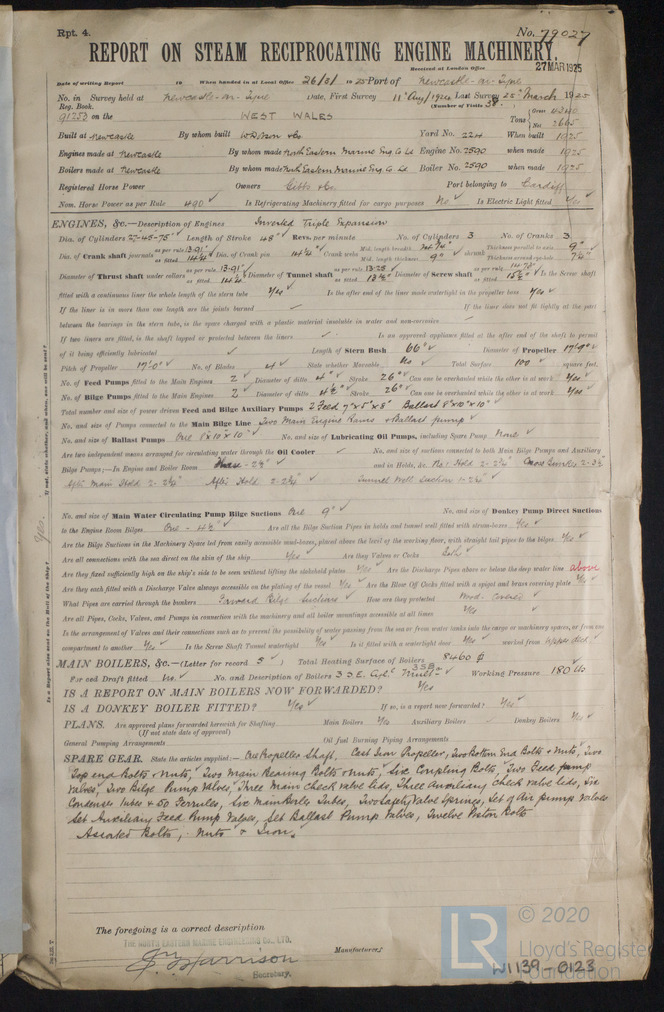 Rpt. 4. No. 79027
REPORT ON STEAM RECIPROCATING ENGINE MACHINERY.
Received at London Office 27 MAR 1925
Date of writing Report 19 When handed in at Local Office 26/3/ 19 25 Port of Newcastle-on-Tyne
No. in Survey held at Newcastle-on-Tyne Date, First Survey 11th Aug/1924 Last Survey 25th March 1925
Reg. Book. (Number of Visits 58)
91253 on the WEST WALES Tons Gross Net
Built at Newcastle By whom built Yard No. 224 When built 1925
Engines made at Newcastle By whom made North Eastern Marine Eng Co Ld Engine No. 2590 when made 1925
Boilers made at Newcastle By whom made North Eastern Marine Eng Co Ld Boiler No. 2590 when made 1925
Registered Horse Power Owners Gibbs & Co. Port belonging to Cardiff
Nom. Horse Power as per Rule 490 Is Refrigerating Machinery fitted for cargo purposes No Is Electric Light fitted Yes
ENGINES, &c.—Description of Engines Inverted Triple Expansion
Dia. of Cylinders 27-45-75" Length of Stroke 48" Revs. per minute No. of Cylinders 3 No. of Cranks 3
Dia. of Crank shaft journals as per rule 13.91" as fitted 14¼" Dia. of Crank pin 14¼" Crank webs Mid. length breadth Mid. length thickness 9" shrunk Thickness parallel to axis 9" Thickness around eye-hole
Diameter of Thrust shaft under collars as per rule 13.91" as fitted 14¼" Diameter of Tunnel shaft as per rule 13.25 as fitted 13½" Diameter of Screw shaft as per rule as fitted Is the Screw shaft
fitted with a continuous liner the whole length of the stern tube Yes Is the after end of the liner made watertight in the propeller boss Yes
If the liner is in more than one length are the joints burned If the liner does not fit tightly at the part
between the bearings in the stern tube, is the space charged with a plastic material insoluble in water and non-corrosive
If two liners are fitted, is the shaft lapped or protected between the liners Is an approved appliance fitted at the after end of the shaft to permit
of it being efficiently lubricated Length of Stern Bush 66" Diameter of Propeller 17'-9"
Pitch of Propeller 17'-0" No. of Blades 4 State whether Moveable No Total Surface 100 square feet.
No. of Feed Pumps fitted to the Main Engines 2 Diameter of ditto 4" Stroke 26" Can one be overhauled while the other is at work Yes
No. of Bilge Pumps fitted to the Main Engines 2 Diameter of ditto 4½" Stroke 26" Can one be overhauled while the other is at work Yes
Total number and size of power driven Feed and Bilge Auxiliary Pumps 2 Feed 7"x5"x8" Ballast 8"x10"x10"
No. and size of Pumps connected to the Main Bilge Line Two Main Engine Rams & Ballast pump
No. and size of Ballast Pumps One 8"x10"x10" No. and size of Lubricating Oil Pumps, including Spare Pump None
Are two independent means arranged for circulating water through the Oil Cooler No. and size of suctions connected to both Main Bilge Pumps and Auxiliary
Bilge Pumps;—In Engine and Boiler Room and in Holds, &c. No 1 Hold 2-2¼" Cross Bunker 2-3½"
After Main Hold 2-2¼" After Hold 2-2¼" Tunnel Well Suction 1-2½"
No. and size of Main Water Circulating Pump Bilge Suctions One 9" No. and size of Donkey Pump Direct Suctions
to the Engine Room Bilges One - 4½" Are all the Bilge Suction Pipes in holds and tunnel well fitted with strum-boxes Yes
Are the Bilge Suctions in the Machinery Space led from easily accessible mud-boxes, placed above the level of the working floor, with straight tail pipes to the bilges Yes
Are all connections with the sea direct on the skin of the ship Yes Are they Valves or Cocks Both
Are they fixed sufficiently high on the ship's side to be seen without lifting the stokehold plates Yes Are the Discharge Pipes above or below the deep water line above
Are they each fitted with a Discharge Valve always accessible on the plating of the vessel Yes Are the Blow Off Cocks fitted with a spigot and brass covering plate Yes
What Pipes are carried through the bunkers Forward Bilge Suctions How are they protected Wood covered
Are all Pipes, Cocks, Valves, and Pumps in connection with the machinery and all boiler mountings accessible at all times Yes
Is the arrangement of Valves and their connections such as to prevent the possibility of water passing from the sea or from water tanks into the cargo or machinery spaces, or from one
compartment to another Yes Is the Screw Shaft Tunnel watertight Yes Is it fitted with a watertight door Yes worked from Upper deck
MAIN BOILERS, &c.—(Letter for record S) Total Heating Surface of Boilers 8460
Forced Draft fitted No. No. and Description of Boilers 3 S.E. Cyl. Mult. 3SB Working Pressure 180 lbs
IS A REPORT ON MAIN BOILERS NOW FORWARDED? Yes
IS A DONKEY BOILER FITTED? Yes If so, is a report now forwarded? Yes
PLANS. Are approved plans forwarded herewith for Shafting Main Boilers Yes Auxiliary Boilers Donkey Boilers Yes
(If not state date of approval)
General Pumping Arrangements Oil fuel Burning Piping Arrangements
SPARE GEAR. State the articles supplied:— One Propeller Shaft, Cast Iron Propeller, Two Bottom End Bolts & Nuts, Two
Top end Bolts & Nuts, Two Main Bearing Bolts & Nuts, Six Coupling Bolts, Two Feed pump
Valves, Two Bilge Pump Valves, Three Main Check valve lids, Three Auxiliary Check valve lids, Six
Condenser tubes & 50 Ferrules, Six Main Boiler Tubes, Two Safety Valve Springs, Set of Air pump Valves
Set Auxiliary Feed Pump Valves, Set Ballast Pump Valves, Twelve Piston Bolts
Assorted Bolts, Nuts & Iron.
The foregoing is a correct description
THE NORTH EASTERN MARINE ENGINEERING CO., LTD.
Harrison Manufacturer.
Secretary.
© 2020
LR Lloyd's Register
Foundation
W1139-0123